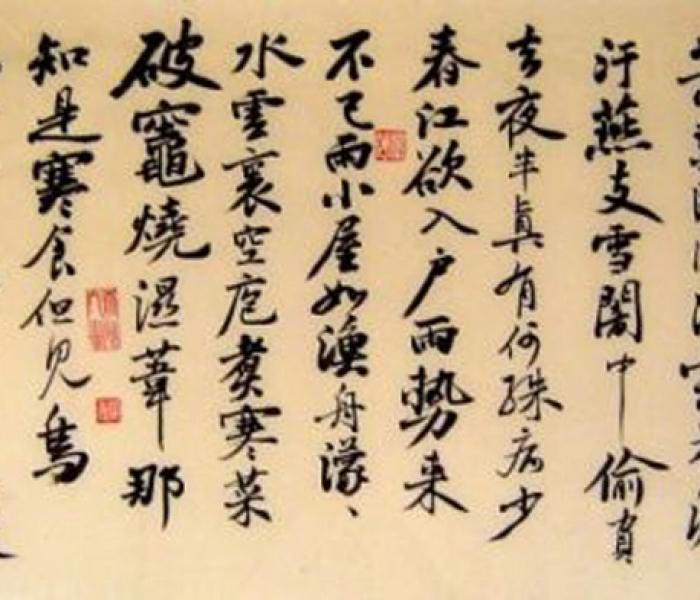 汙燕支雪闇中偷負
去夜半真有何殊病少
春江欲入戶雨勢来
不已雨小屋如漁舟濛、
水雲裏空庖煮寒菜
破竈燒濕葦那
知是寒食但見烏